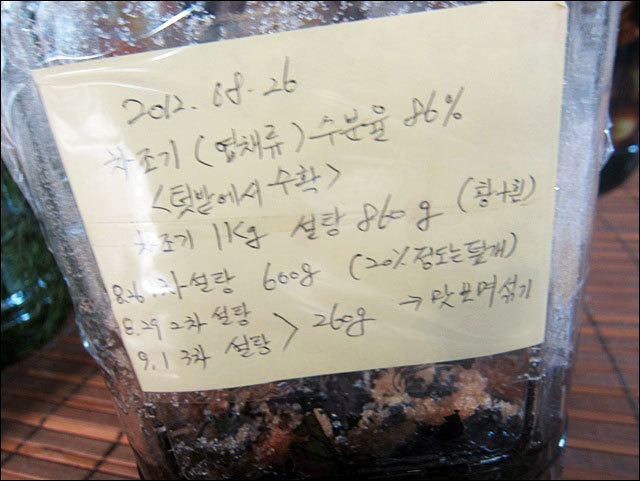 2012. 08. 26
차조기 (엽채류) 수분율 86%
<텃밭에서 수확>
차조기 1kg 설탕 860g (황+흰)
8.26 1차 설탕 600g (20%정도는 덜개)
8.29 2차 설탕 > 260g → 맛보며 섞기
9.1 3차 설탕